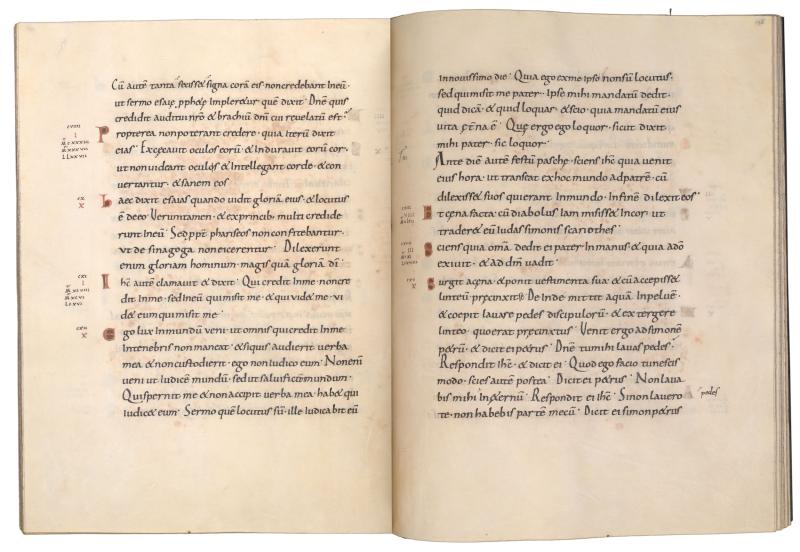 Cū autē tanta fecisset signa corā eis noncredebant Ineū·
ut sermo esaię pphetę Impleretur quē dixit· Dn̄e quis
credidit auditui nr̄o & brachiū dn̄i cui reuelatū est·
Propterea nonpoterant credere· quia Iterū dixit
eias· Excęcauit oculos eorū & Indurauit eorū cor·
ut nonuideant oculis & Intellegant corde· & con
uertantur· & sanem eos
Haec dixit esaias quando uidit gloriā eius· & locutus
ē deeo· Veruntamen· & exprincib; multi credide
runt Ineū· Sed ppt̄ phariseos nonconfitebantur·
vt de sinagoga noneicerentur· Dilexerunt
enim gloriam hominum· magis quā gloriā dī·
Ihc̄ autē clamauit & dixit· Qui credit Inme· noncre
dit Inme· sed Ineū qui misit me· & qui uid& me· vi
d& eum qui misit me·
Ego lux Inmundū ueni· ut omnis qui credit Inme
Intenebris nonmaneat· & siquis audierit uerba
mea & noncustodierit· ego nonIudico eum· Nonenī
ueni ut Iudicē mundū· sed ut saluificē mundum·
Qui spernit me & nonaccipit uerba mea· hab& qui
Iudic& eum· Sermo quē locutus sū· ille Iudicabit eū
Innouissimo die· Quia ego exme Ipse nonsū locutus·
sed qui misit me pater· Ipse mihi mandatū dedit·
quid dicā· & quid loquar· & scio· quia mandatū eius
uita &erna ē· Quę ergo ego loquor· sicut dixit
mihi pater· sic loquor·
Ante diē autē festū paschę· sciens ihc̄ quia uenit
eius hora· ut transeat exhoc mundo adpatrē· cū
dilexiss& suos qui erant Inmundo· Infinē dilexit eos
Et cęna facta· cū diabolus Iam misiss& Incor· ut
trader& eū Iudas simonis scariothes·
Sciens quia om̄a dedit ei pater Inmanus & quia adō
exiuit· & ad dm̄ uadit·
Surgit acęna· & ponit uestimenta sua· & cū accepiss&
linteū pręcinxit se· Deinde mittit aquā Inpeluē·
& coepit lauare pedes discipulorū· & extergere
linteo· quo erat pręcinctus· Venit ergo adsimonē
p&rū· & dicit ei p&rus· Dn̄e tu mihi lauas pedes·
Respondit ihc̄· & dicit ei· Quod ego facio tu nescis
modo· scies autē postea· Dicit ei p&rus· Non laua
bis mihi In&ernū· Respondit ei ihc̄· Sinon lauero
pedes
te· non habebis partē mecū· Dicit ei simon p&rus